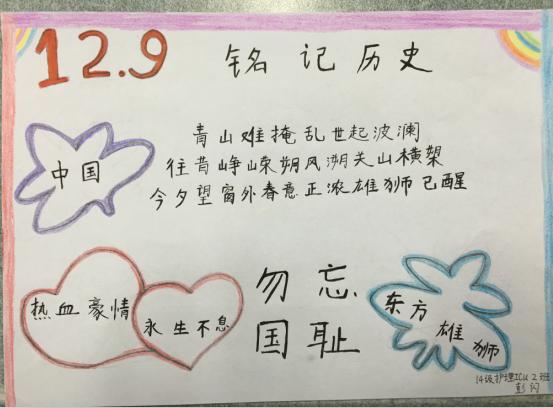 12.9 铭记历史
青山难掩乱世起波澜
往昔峥嵘朔风溯关山横架
今夕望窗外春意正浓雄狮已醒
中国
热血豪情
永生不息
勿忘
国耻
东方
雄
狮
14级护理ICU2班